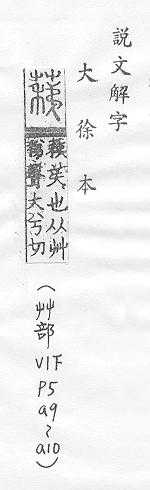 説文解字
大徐本
蕛
蕛苵也从艸
稊聲大兮切
(艸部V1F P5 a9~a10)